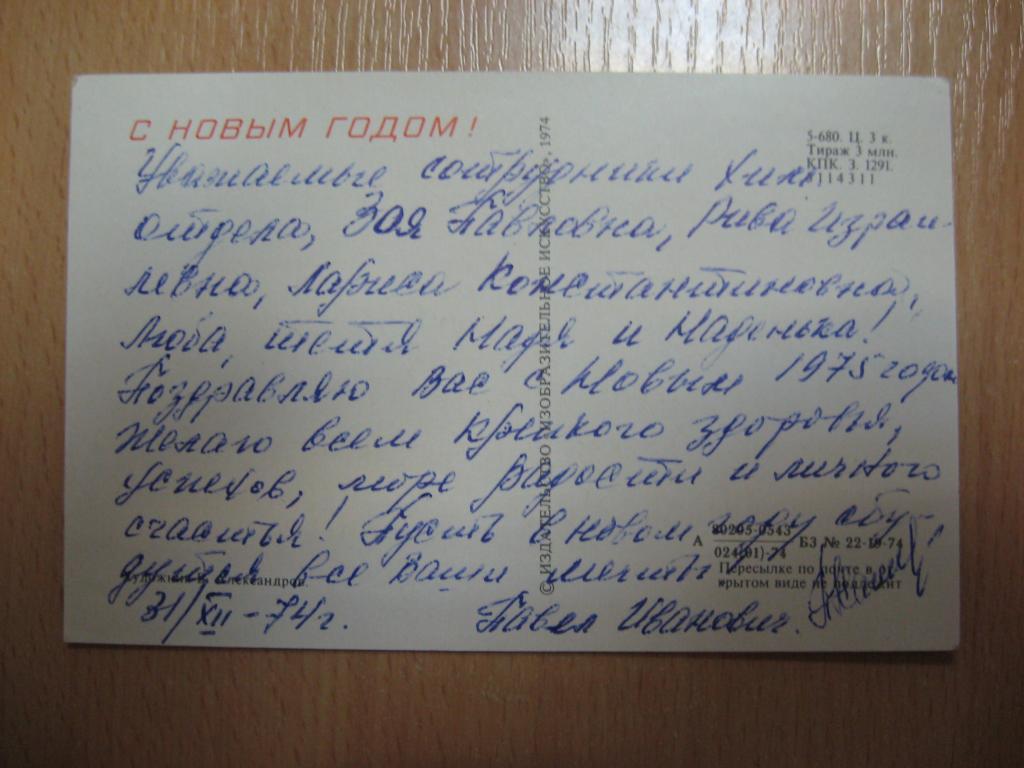 С НОВЫМ ГОДОМ!
5-680. Ц. 3 к.
Тираж 3 млн.
КПК. З. 1291.
114311
Уважаемые сотрудники хим
отдела, Зоя Павловна, Рива Израи-
левна, Лариса Константиновна,
Люба, тетя Надя и Наденька!
Поздравляю Вас с Новым 1975 годом
Желаю всем крепкого здоровья,
успехов, море радости и личного
счастья! Пусть в новом году сбу-
дутся все Ваши мечты!
31/XII-74г.
Павел Иванович.
© ИЗДАТЕЛЬСТВО «ИЗОБРАЗИТЕЛЬНОЕ ИСКУССТВО». 1974
А 80205-0543
024(01)-74 БЗ № 22-19-74
Пересылке по почте в от-
крытом виде не подлежит
Художник Б. Александров